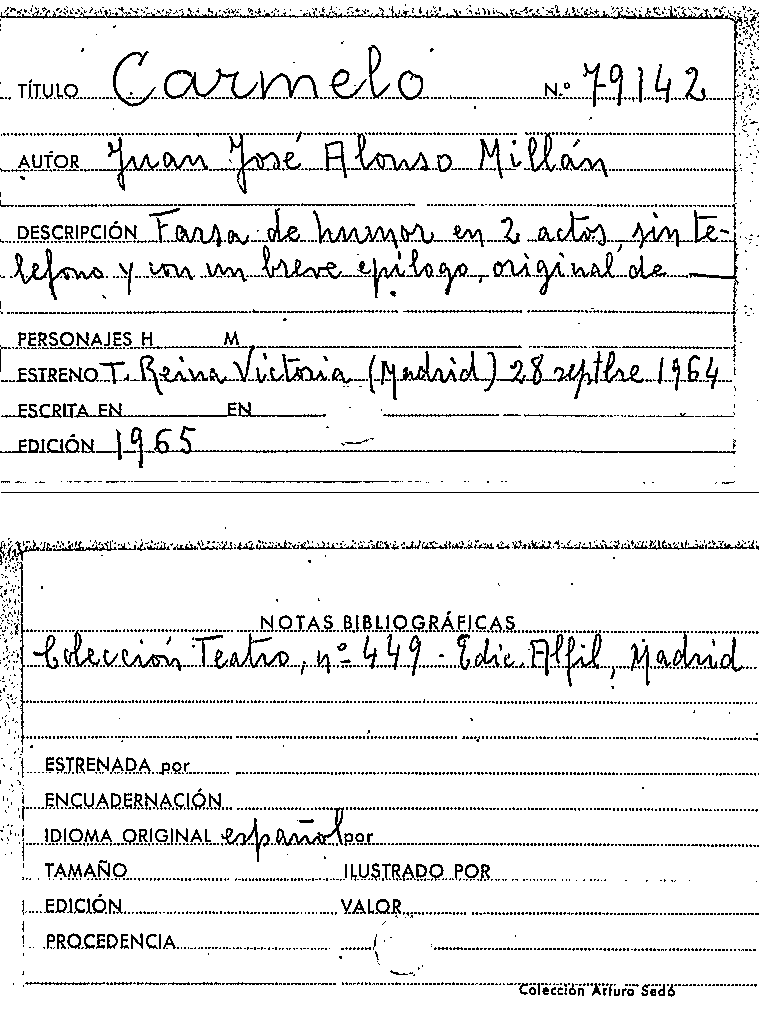 TÍTULO Carmelo N.º 79142
AUTOR Juan José Alonso Millán
DESCRIPCIÓN Farsa de humor en 2 actos, sin te-
lefono y con un breve epílogo, original de —
PERSONAJES H M
ESTRENO T. Reina Victoria (Madrid) 28 septbre 1964
ESCRITA EN EN
EDICIÓN 1965
NOTAS BIBLIOGRÁFICAS
Colección Teatro, nº 449 - Edic. Alfil, Madrid
ESTRENADA por
ENCUADERNACIÓN
IDIOMA ORIGINAL español por
TAMAÑO ILUSTRADO POR
EDICIÓN VALOR
PROCEDENCIA
Colección Arturo Sedó